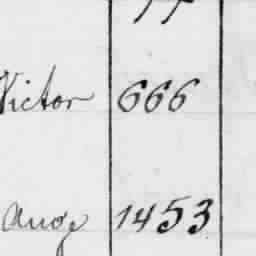 Victor 666
Ange 1453